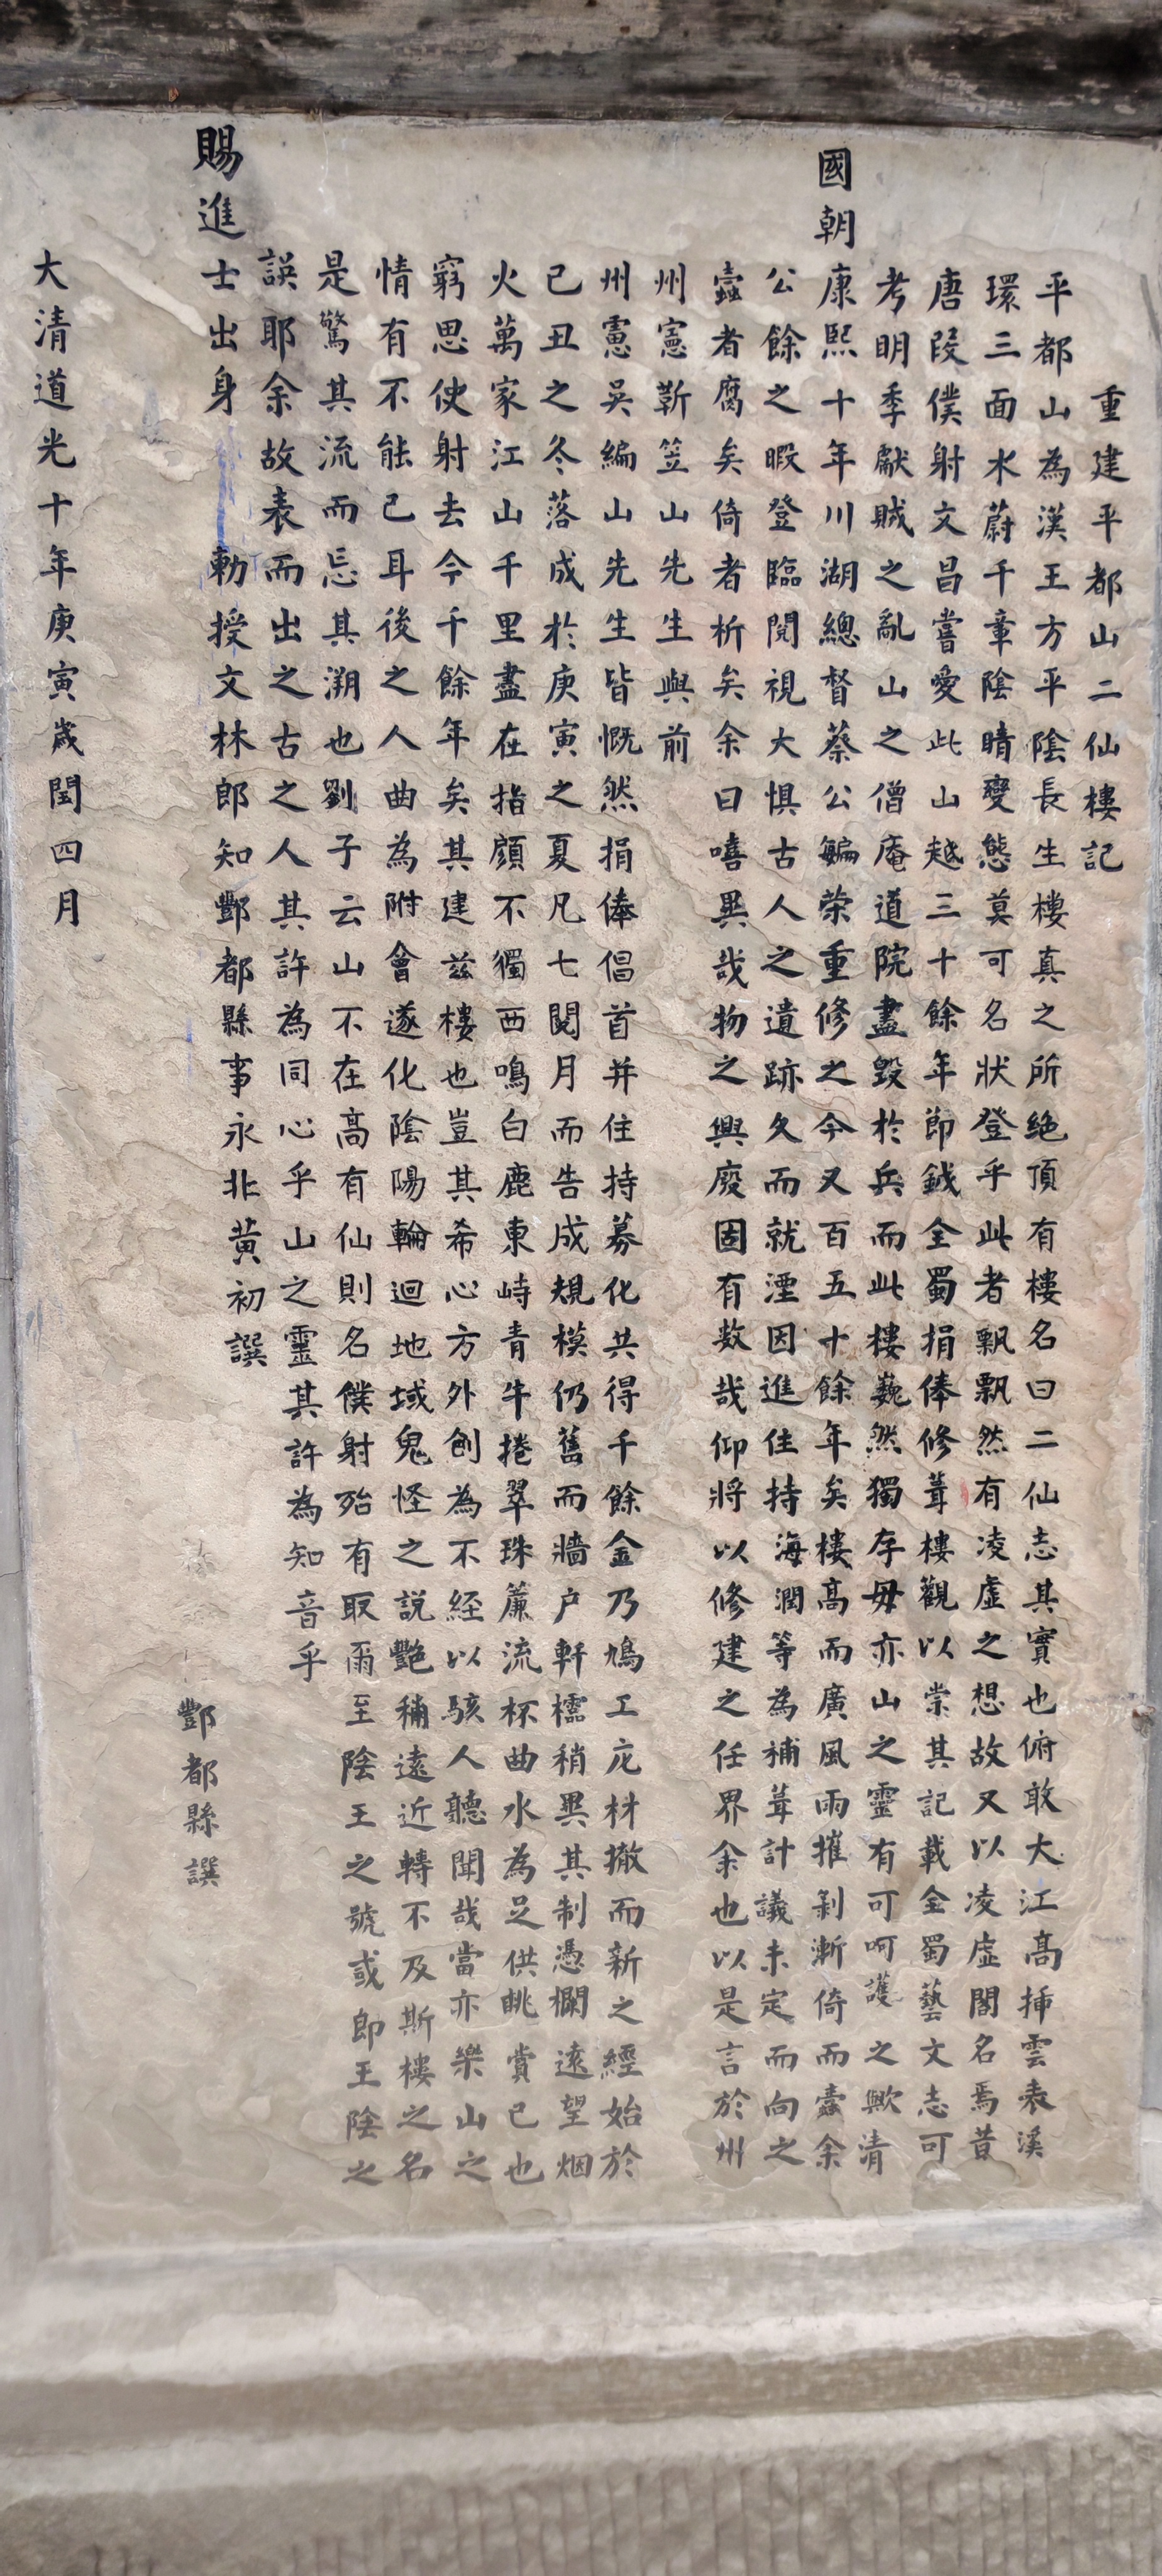 重建平都山二仙樓記
平都山為漢王方平陰長生樓真之所絶頂有樓名曰二仙志其實也俯敢大江高揷雲表溪
環三面水蔚千章陰晴變態莫可名狀登乎此者飄飄然有凌虛之想故又以凌虛閣名焉昔
唐叚僕射文昌嘗愛此山越三十餘年節鉞全蜀捐俸修葺樓觀以崇其記載全蜀藝文志可
考明季獻賊之亂山之僧庵道院盡毀於兵而此樓巍然獨存毋亦山之靈有可呵護之歟清
國朝康熙十年川湖總督蔡公毓榮重修之今又百五十餘年矣樓高而廣風雨摧剝漸倚而蠹余
公餘之暇登臨閱視大惧古人之遺跡久而就湮因進住持海潤等為補葺計議未定而向之
蠹者腐矣倚者析矣余曰嘻異哉物之興廢固有数哉仰將以修建之任畀余也以是言於州
州憲靳笠山先生與前
州憲吳編山先生皆慨然捐俸倡首并住持募化共得千餘金乃鳩工庀材撤而新之經始於
己丑之冬落成於庚寅之夏凡七閱月而告成規模仍舊而牆户軒櫺稍異其制憑欄遠望烟
火萬家江山千里盡在指顧不獨西鳴白鹿東峙青牛捲翠珠簾流杯曲水為足供眺賞已也
窮思使射去今千餘年矣其建茲樓也豈其希心方外創為不經以駭人聽聞哉當亦樂山之
情有不能已耳後之人曲為附會遂化陰陽輪迴地域鬼怪之説艷稱遠近轉不及斯樓之名
是驚其流而忘其溯也劉子云山不在高有仙則名僕射殆有取爾至陰王之號或即王陰之
誤耶余故表而出之古之人其許為同心乎山之靈其許為知音乎
賜進士出身 勅授文林郎知酆都縣事永北黄初譔
酆都縣譔
大清道光十年庚寅歲閏四月